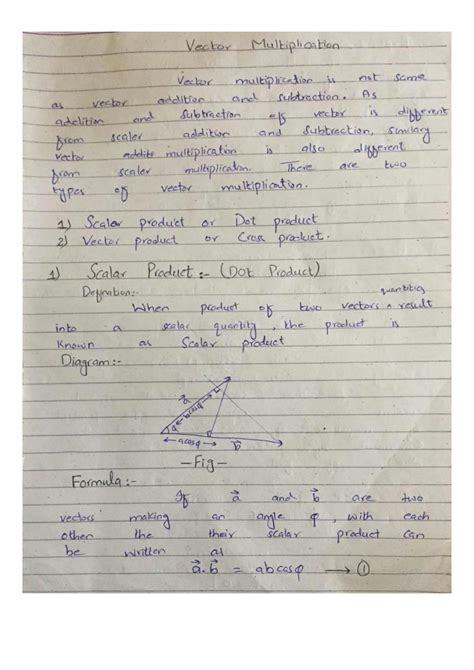 Vector Multiplication
Vector multiplication is not same
as vector addition and subtraction. As
adelition and subtraction of vector is different
from scaler addition and subtraction, similary
vector addits multiplication is also different
from scaler multiplication. There are two
types of vector multiplication.
1) Scalar product or Dot product
2) Vector product or Cross product.
1) Scalar Product :- (DOt Product)
Defination:-
quantities
When product of two vectors ^ result
into a scalar quantity, the product is
Known as Scalar product
Diagram:-
a⃗
φ ← bcosφ →
← acosφ →
b⃗
- Fig -
Formula:-
If a⃗ and b⃗ are two
vectors making an angle φ, with each
other the their scalar product can
be written as
a⃗.b⃗ = abcosφ → ①